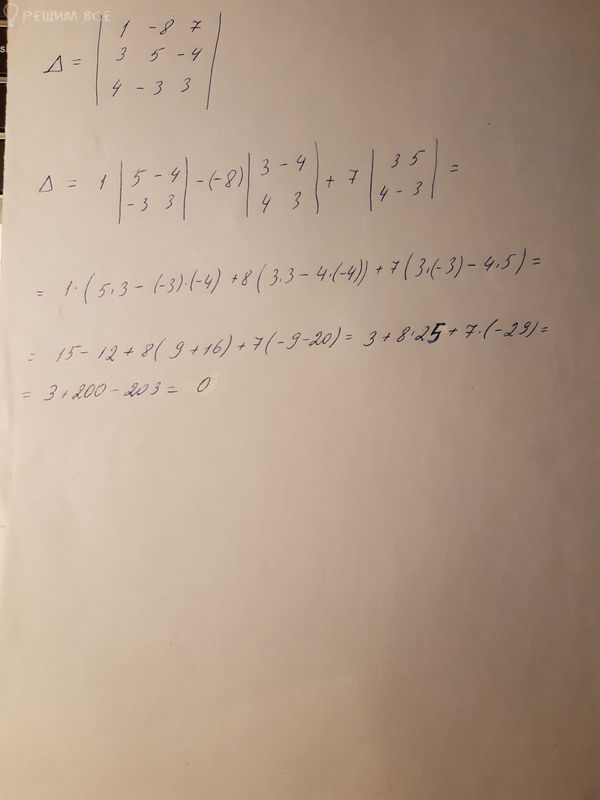 РЕШИМ ВСЁ
1 -8 7
Δ = | 3 5 -4 |
4 -3 3
Δ = 1 | 5 -4 | -(-8) | 3 -4 | + 7 | 3 5 | =
-3 3 4 3 4 -3
= 1·(5·3-(-3)·(-4) +8(3·3-4·(-4))+7(3·(-3)-4·5)=
= 15-12+8(9+16)+7(-9-20)= 3+8·25+7·(-29)=
= 3+200-203= 0